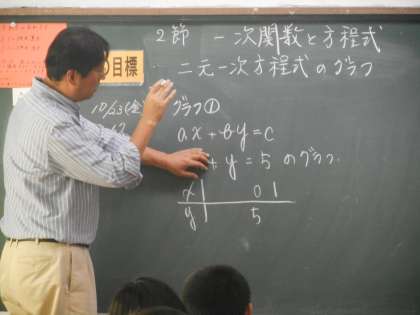 2節 一次関数と方程式
目標
二元一次方程式のグラフ
10/23(金) グラフ①
ax+by=c
+ y = 5 のグラフ.
x 0 1
y 5